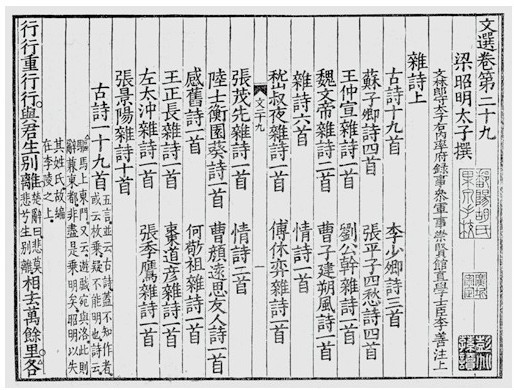 文選卷第二十九
梁昭明太子撰
文林郎守太子右內率府錄事參軍事崇賢館直學士臣李善注上
雜詩上
古詩十九首 李少卿詩三首
蘇子卿詩四首 張平子四愁詩四首
王仲宣雜詩一首 劉公幹雜詩一首
魏文帝雜詩二首 曹子建朔風詩一首
雜詩六首 情詩一首
嵇叔夜雜詩一首 傅休弈雜詩一首
文二十九 一
張茂先雜詩一首 情詩二首
陸士衡園葵詩一首 曹顏遠思友人詩一首
感舊詩一首 何敬祖雜詩一首
王正長雜詩一首 棗道彥雜詩一首
左太沖雜詩一首 張季鷹雜詩一首
張景陽雜詩十首
古詩一十九首 五言並云古詩蓋不知作者
或云枚乘疑不能明也詩云
驅馬上東門又云遊戲宛與洛此則
辭兼東都非盡是乘明矣昭明以失
其姓氏故編
在李陵之上
行行重行行與君生別離楚辭曰悲莫悲兮生別離相去萬餘里各